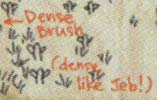 ←Dense
Brush
(dense
like Jeb!)